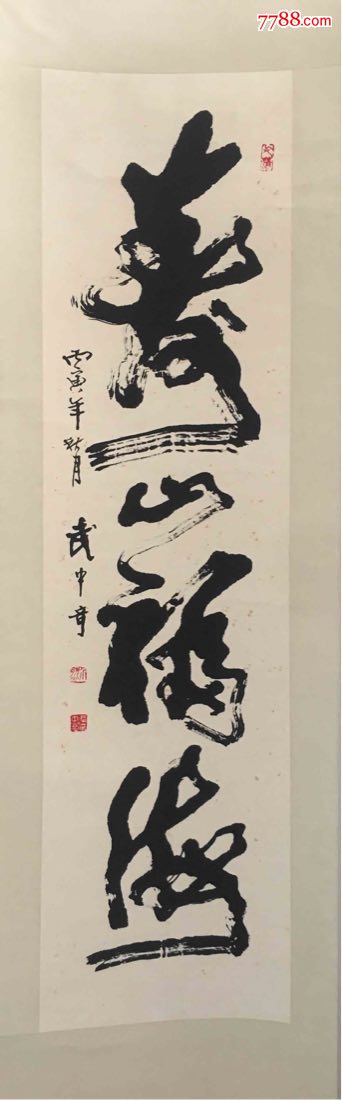 7788.com
壽山福海
丙寅年秋月
武中奇